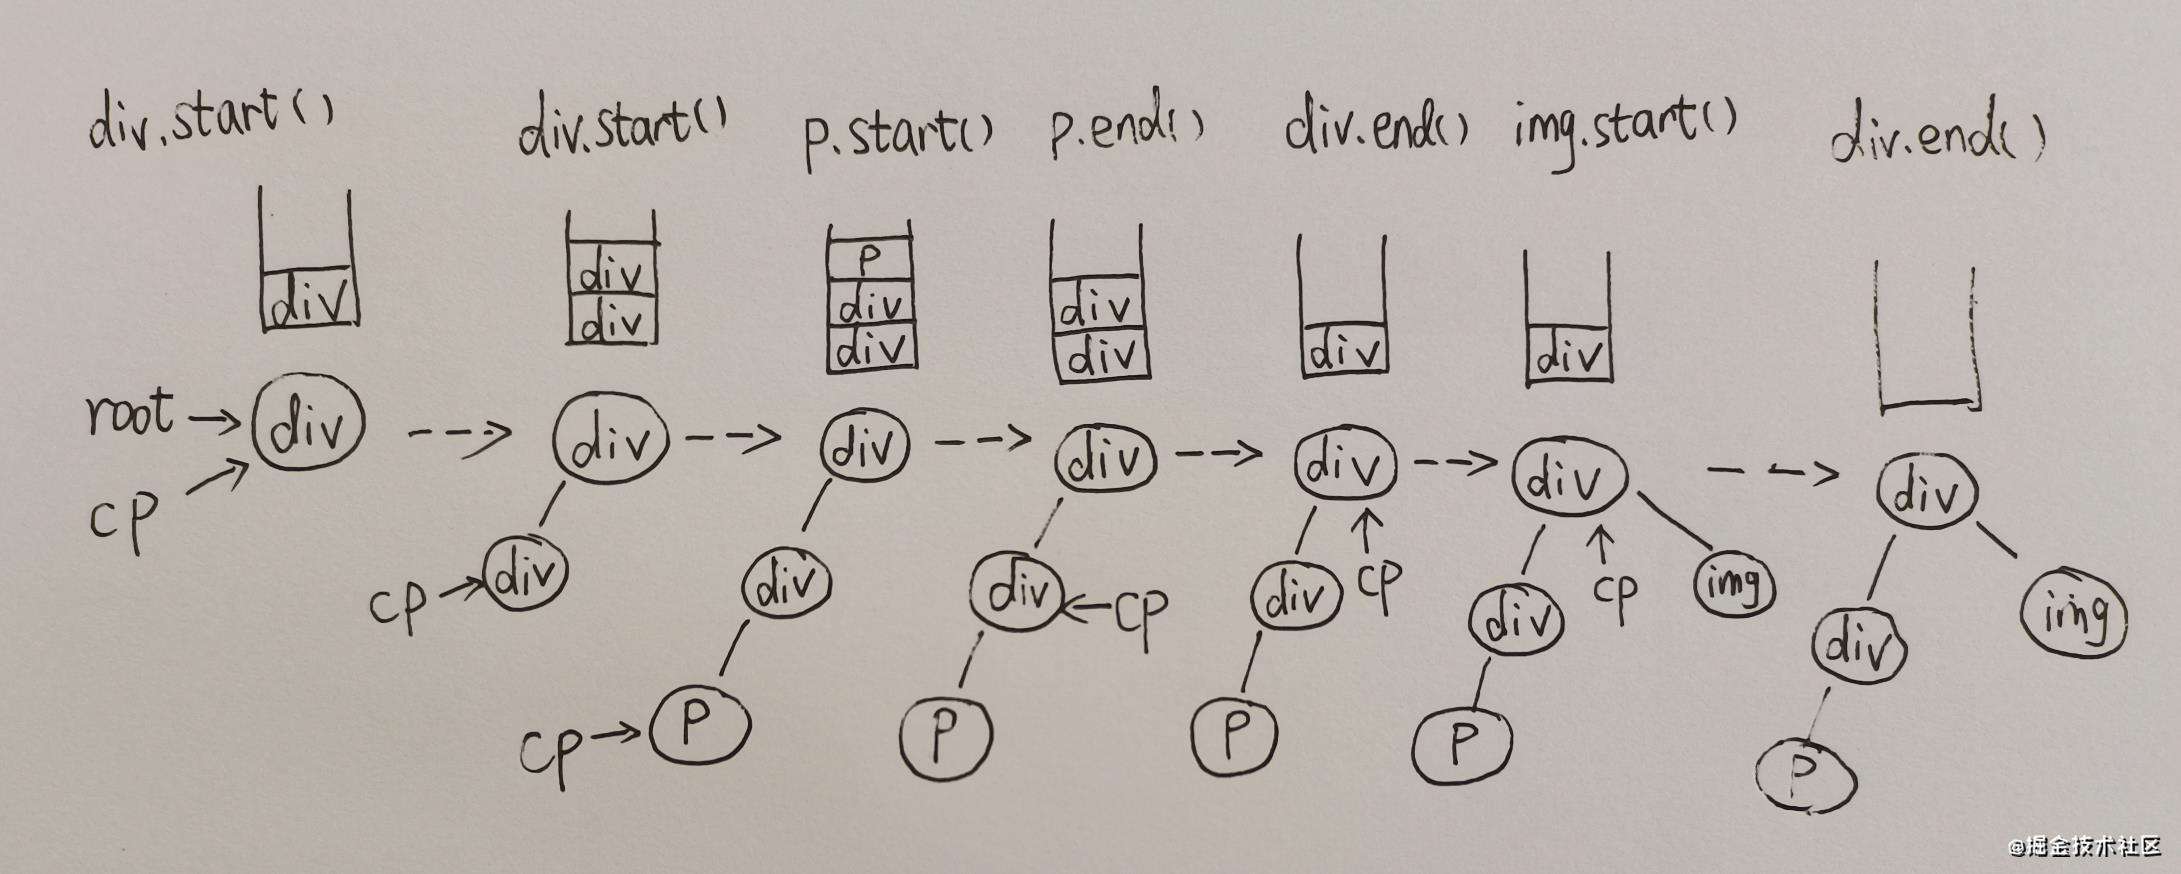 div.start() div.start() p.start() p.end() div.end() img.start() div.end()
div
div
div
P
div
div
div
div
div
div
root
cp
div
div
div
cp
div
div
P
cp
div
div
cp
P
div
div
cp
P
div
img
cp
div
P
div
img
div
P
@掘金技术社区